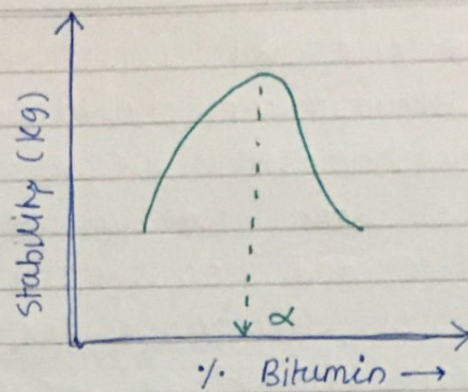 Stability (Kg)
α
% Bitumin →